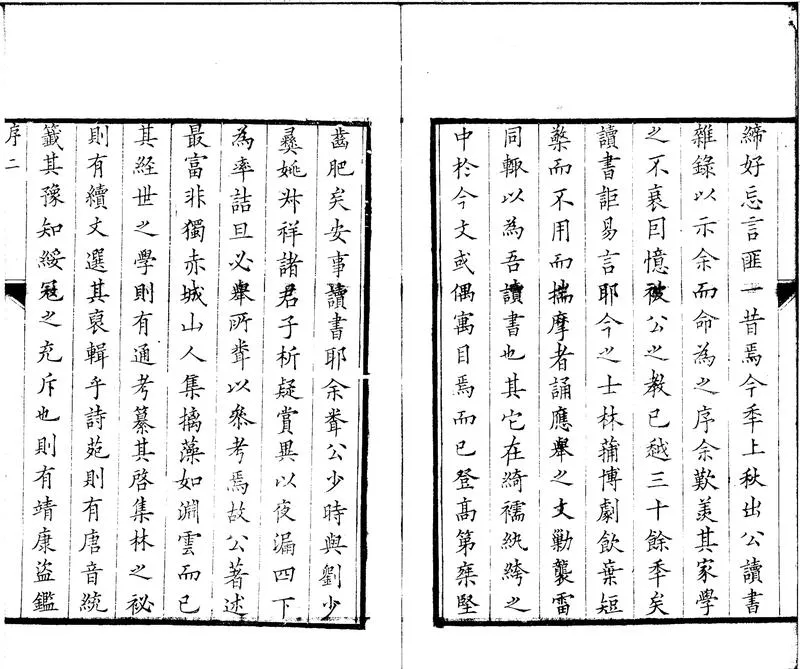 締好忘言匪一昔焉今秊上秋出公讀書
雜錄以示余而命為之序余歎羨其家學
之不衰囙憶被公之教已越三十餘秊矣
讀書詎易言耶今之士林蒱博劇飲葉短
檠而不用而揣摩者誦應舉之文勦襲雷
同輙以為吾讀書也其它在綺襦紈綺之
中於今文或偶寓目焉而已登高第乘堅
齒肥矣安事讀書耶余聳公少時與劉少
彞姚丱祥諸君子析疑賞異以夜漏四下
為率詰旦必舉所聳以叅考焉故公著述
最富非獨赤城山人集摛藻如淵雲而已
其經世之學則有通考纂其啓集林之祕
則有續文選其裒輯乎詩苑則有唐音統
籤其豫知綏寇之充斥也則有靖康盜鑑
序二